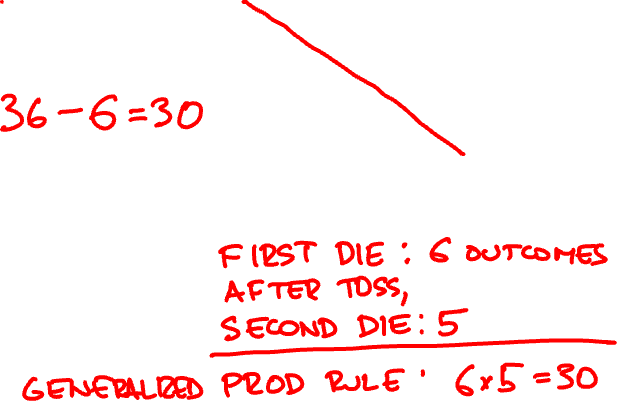 36-6=30
FIRST DIE: 6 OUTCOMES
AFTER TOSS,
SECOND DIE: 5
GENERALIZED PROD RULE: 6x5=30